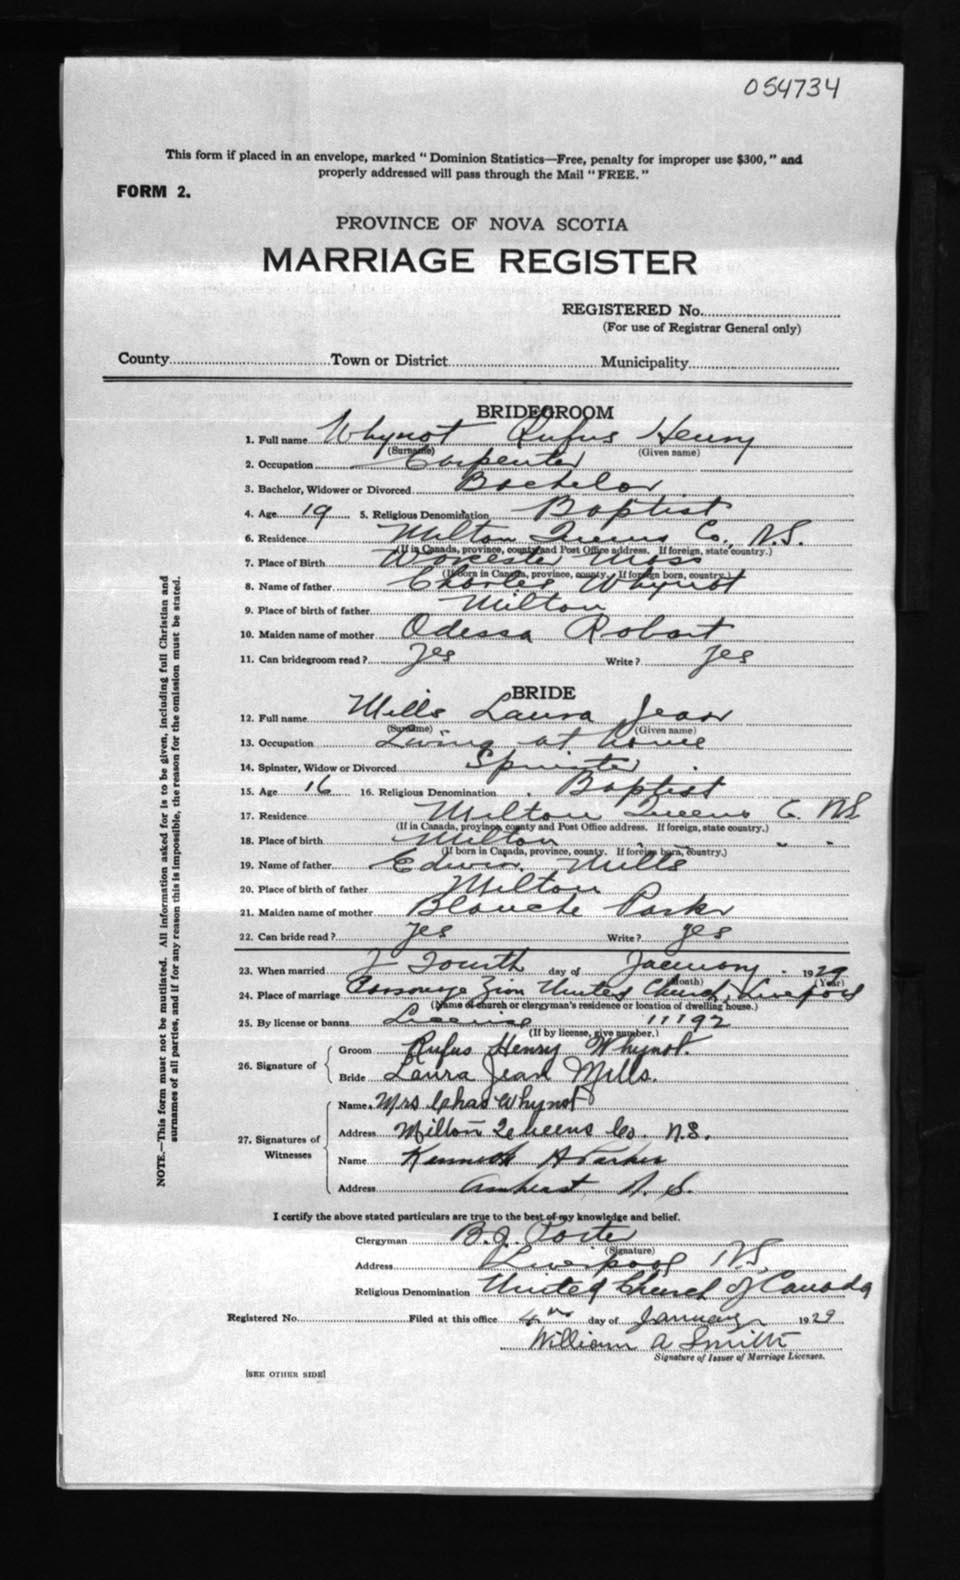 054734
This form if placed in an envelope, marked "Dominion Statistics—Free, penalty for improper use $300," and
properly addressed will pass through the Mail "FREE."
FORM 2.
PROVINCE OF NOVA SCOTIA
MARRIAGE REGISTER
REGISTERED No.
(For use of Registrar General only)
County Town or District Municipality
BRIDEGROOM
1. Full name Whynot Rufus Henry
(Surname) (Given name)
2. Occupation Carpenter
3. Bachelor, Widower or Divorced Bachelor
4. Age 19 5. Religious Denomination Baptist
6. Residence Milton Queens Co., N.S.
(If in Canada, province, county and Post Office address. If foreign, state country.)
7. Place of Birth Worcester Mass
(If born in Canada, province, county. If foreign born, country.)
8. Name of father Charles Whynot
9. Place of birth of father Milton
10. Maiden name of mother Odessa Robart
11. Can bridegroom read? Yes Write? Yes
BRIDE
12. Full name Mills Laura Jean
(Surname) (Given name)
13. Occupation Living at home
14. Spinster, Widow or Divorced Spinster
15. Age 16 16. Religious Denomination Baptist
17. Residence Milton Queens Co. NS
(If in Canada, province, county and Post Office address. If foreign, state country.)
18. Place of birth Milton " " "
(If born in Canada, province, county. If foreign born, country.)
19. Name of father Edwin Mills
20. Place of birth of father Milton
21. Maiden name of mother Blanche Parker
22. Can bride read? Yes Write? Yes
23. When married Fourth day of January 1929
(Month) (Year)
24. Place of marriage Parsonage Zion United Church, Liverpool
(Name of church or clergyman's residence or location of dwelling house.)
25. By license or banns License 11192
(If by license, give number.)
26. Signature of
Groom Rufus Henry Whynot.
Bride Laura Jean Mills.
27. Signatures of Witnesses
Name Mrs Chas Whynot
Address Milton Queens Co. N.S.
Name Kenneth A Parker
Address Amherst N. S.
I certify the above stated particulars are true to the best of my knowledge and belief.
Clergyman B.J. Porter
(Signature)
Address Liverpool NS.
Religious Denomination United Church of Canada
Registered No. Filed at this office 4th day of January 1929
William A Smith
Signature of Issuer of Marriage Licenses.
[SEE OTHER SIDE]
NOTE.—This form must not be mutilated. All information asked for is to be given, including full Christian and
surnames of all parties, and if for any reason this is impossible, the reason for the omission must be stated.